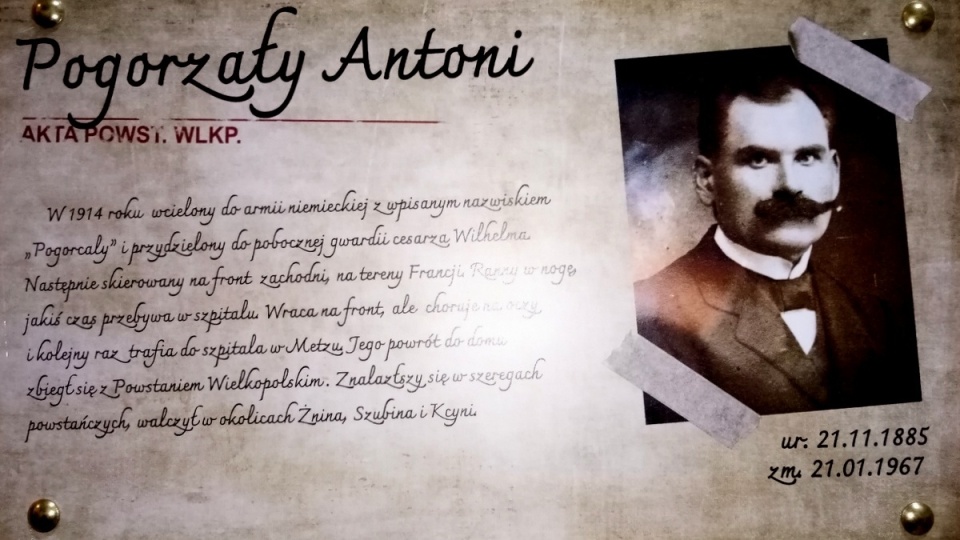 Pogorzały Antoni
AKTA POWST. WLKP.
W 1914 roku wcielony do armii niemieckiej z wpisanym nazwiskiem
„Pogorcaly” i przydzielony do pobocznej gwardii cesarza Wilhelma.
Następnie skierowany na front zachodni, na tereny Francji. Ranny w nogę,
jakiś czas przebywa w szpitalu. Wraca na front, ale choruje na oczy
i kolejny raz trafia do szpitala w Metzu. Jego powrót do domu
zbiegł się z Powstaniem Wielkopolskim. Znalazłszy się w szeregach
powstańczych, walczył w okolicach Żnina, Szubina i Kcyni.
ur. 21.11.1885
zm. 21.01.1967